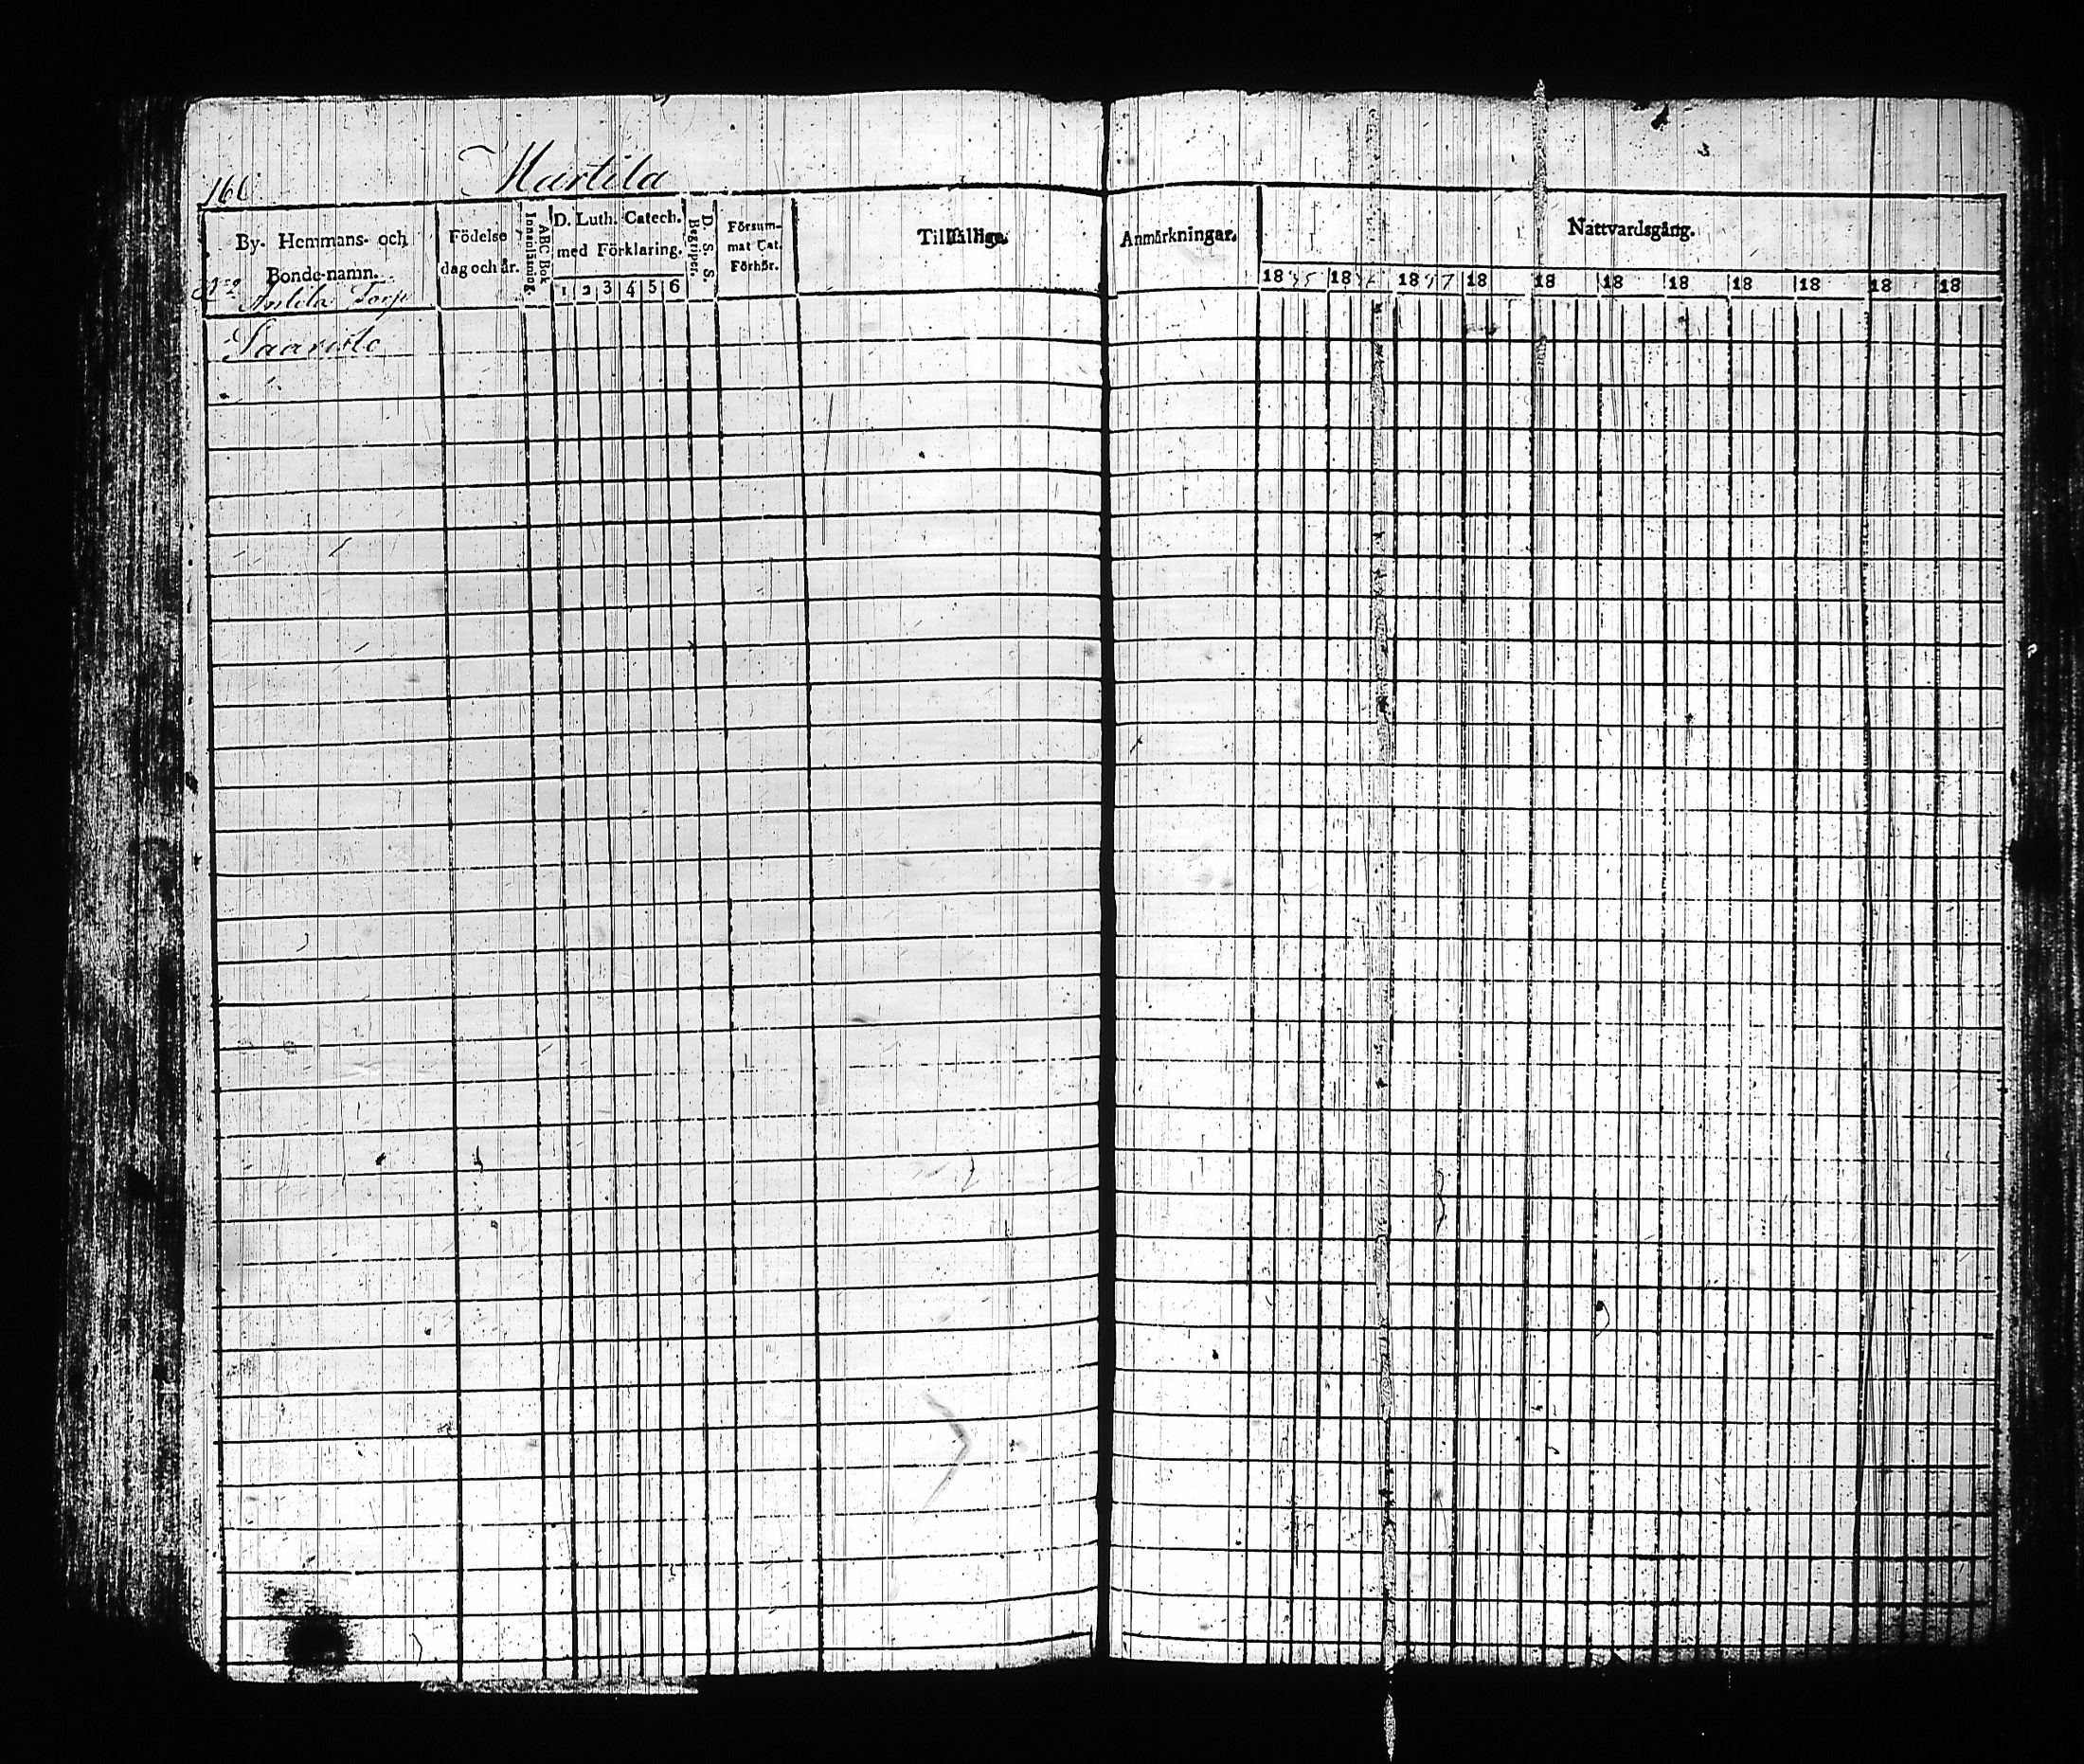 Martila
By- Hemmans- och
Bonde-namn.
Födelse
dag och år.
ABC Bok
Innanläsning.
D. Luth. Catech.
med Förklaring.
1 2 3 4 5 6
D. S. S.
Begriper.
Försum-
mat Cat.
Förhör.
Tillfällige.
Anmärkningar.
Nattvardsgång.
18 35 18 18 37 18 18 18 18 18 18 18 18
No 2
Antila Torp
Saaristo